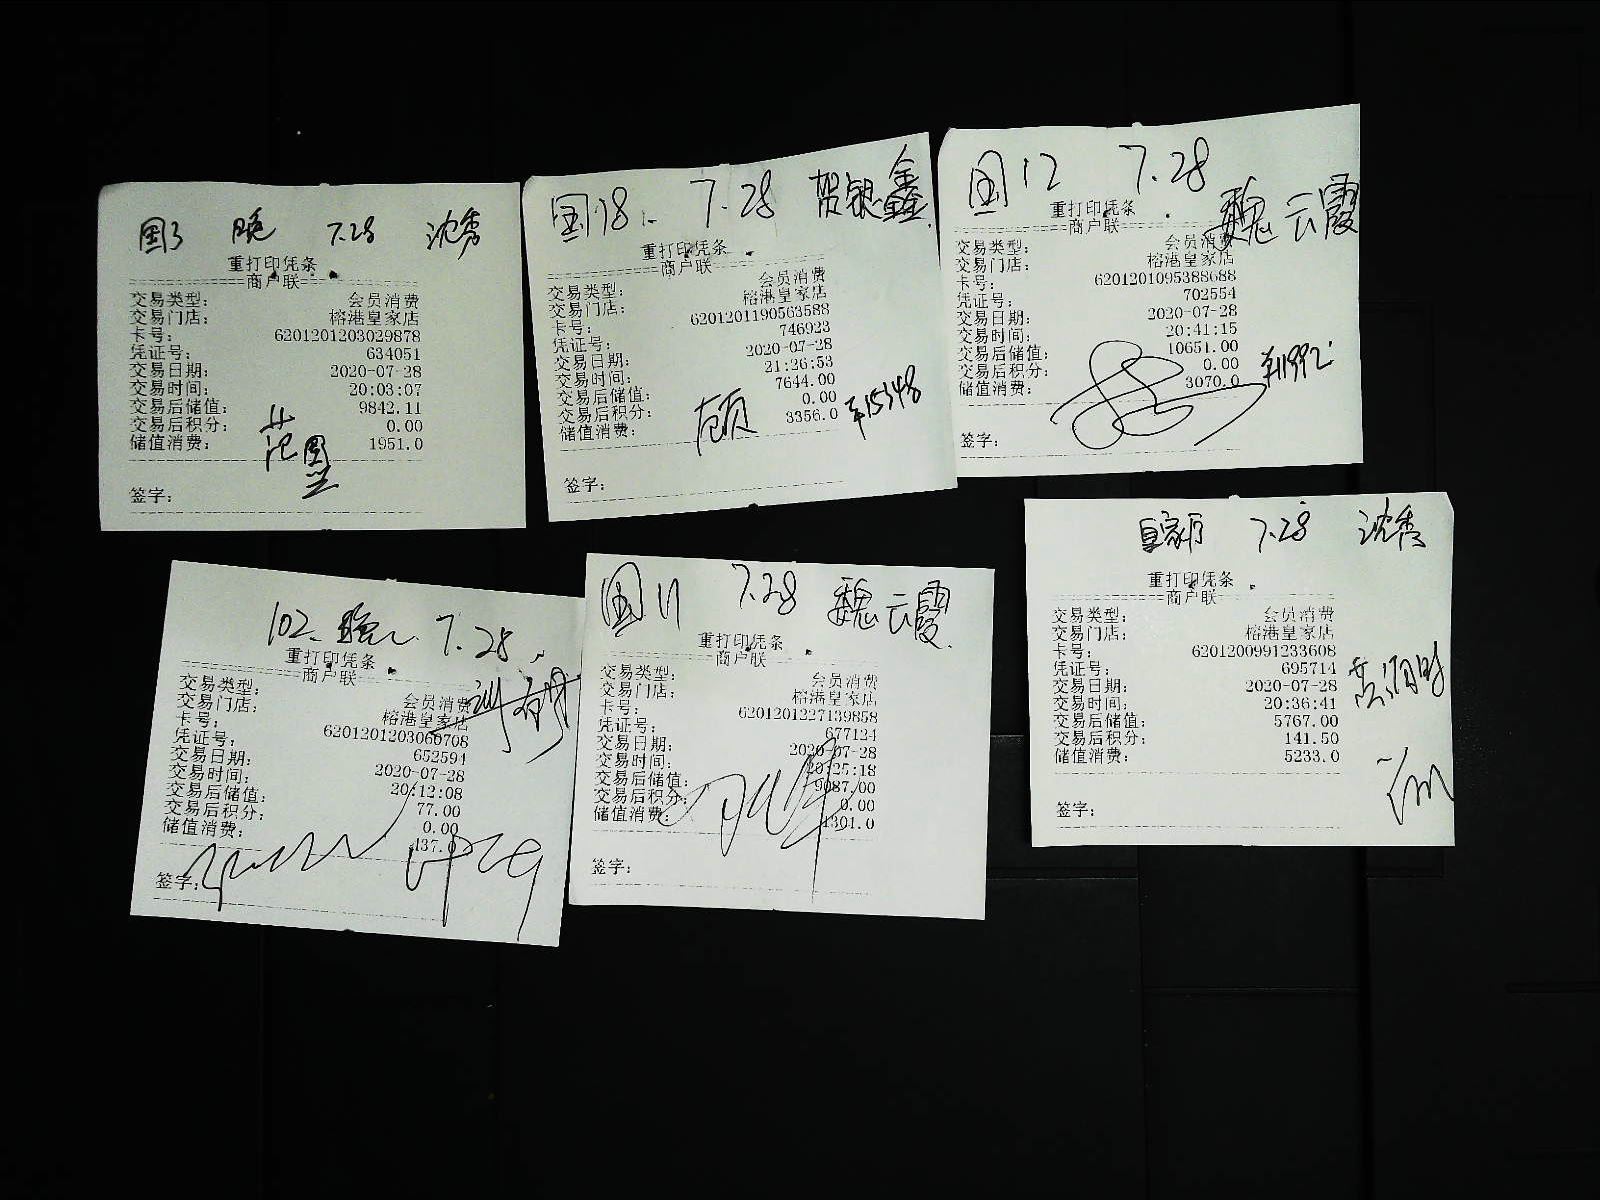 国3 晚 7.28 沈秀
重打印凭条
商户联
交易类型： 会员消费
交易门店： 榕港皇家店
卡号： 6201201203029878
凭证号： 634051
交易日期： 2020-07-28
交易时间： 20:03:07
交易后储值： 9842.11
交易后积分： 0.00
储值消费： 1951.0
范围
签字：
国18 7.28 贺银鑫
重打印凭条
商户联
交易类型： 会员消费
交易门店： 榕港皇家店
卡号： 6201201190563588
凭证号： 746923
交易日期： 2020-07-28
交易时间： 21:26:53
交易后储值： 7644.00
交易后积分： 0.00
储值消费： 3356.0
顾
签字：
国12 7.28
魏云霞
重打印凭条
商户联
交易类型： 会员消费
交易门店： 榕港皇家店
卡号： 6201201095388688
凭证号： 702554
交易日期： 2020-07-28
交易时间： 20:41:15
交易后储值： 10651.00
交易后积分： 0.00
储值消费： 3070.0
签字：
102 7.28
重打印凭条
商户联
交易类型： 会员消费
交易门店： 榕港皇家店
卡号： 6201201203060708
凭证号： 652594
交易日期： 2020-07-28
交易时间： 20:12:08
交易后储值： 77.00
交易后积分： 0.00
储值消费： 437.0
签字：
国11 7.28 魏云霞
重打印凭条
商户联
交易类型： 会员消费
交易门店： 榕港皇家店
卡号： 6201201227139858
凭证号： 677124
交易日期： 2020-07-28
交易时间： 20:25:18
交易后储值： 9087.00
交易后积分： 0.00
储值消费： 1301.0
签字：
皇家厅 7.28 沈秀
重打印凭条
商户联
交易类型： 会员消费
交易门店： 榕港皇家店
卡号： 6201200991233608
凭证号： 695714
交易日期： 2020-07-28
交易时间： 20:36:41
交易后储值： 5767.00
交易后积分： 141.50
储值消费： 5233.0
签字：